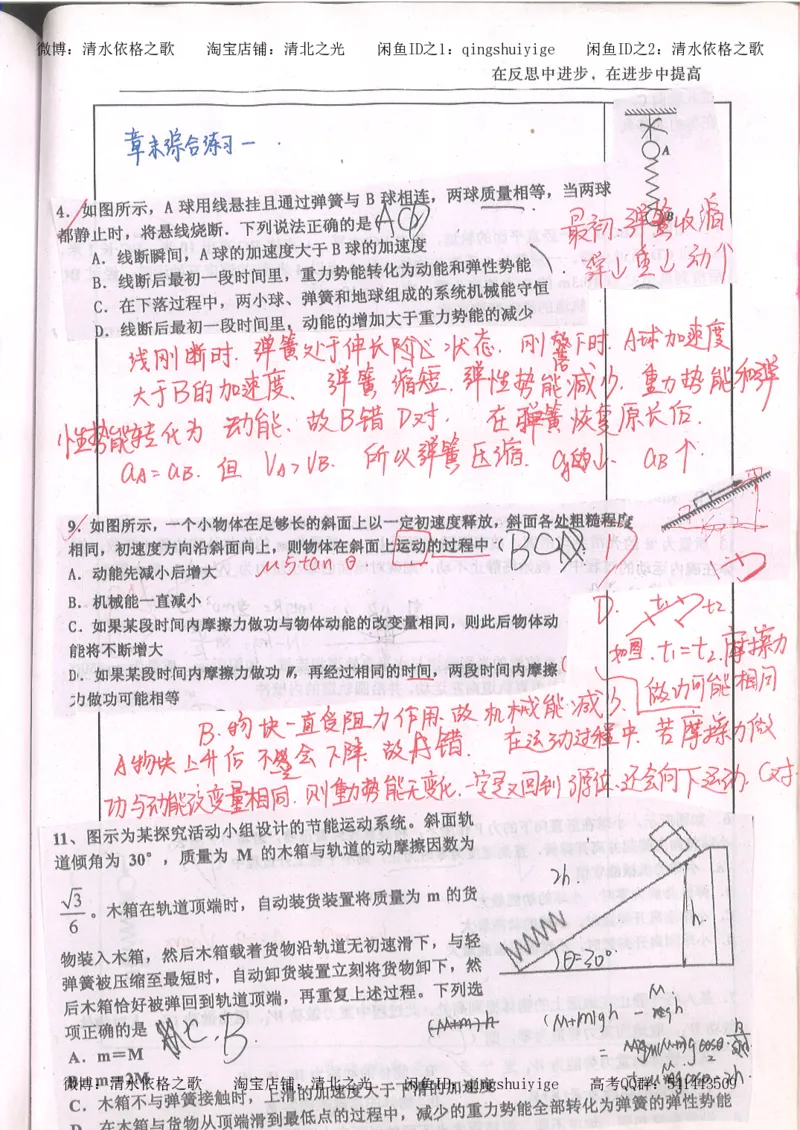 微博：清水依格之歌 淘宝店铺：清北之光 闲鱼ID之1：qingshuiyige 闲鱼ID之2：清水依格之歌
在反思中进步，在进步中提高
章末综合练习一
A
B
4．如图所示，A 球用线悬挂且通过弹簧与 B 球相连，两球质量相等，当两球
都静止时，将悬线烧断．下列说法正确的是（AD）
A．线断瞬间，A 球的加速度大于 B 球的加速度
B．线断后最初一段时间里，重力势能转化为动能和弹性势能
C．在下落过程中，两小球、弹簧和地球组成的系统机械能守恒
D．线断后最初一段时间里，动能的增加大于重力势能的减少
最初弹簧收缩
弹↓重↓动↑
线刚断时．弹簧处于伸长状态．刚落下时．A球加速度
大于B的加速度、弹簧缩短．弹性势能减少．重力势能和弹
性势能转化为动能．故B错 D对．在弹簧恢复原长后．
aA=aB．但 VA>VB．所以弹簧压缩．aB↑．
9．如图所示，一个小物体在足够长的斜面上以一定初速度释放，斜面各处粗糙程度
相同，初速度方向沿斜面向上，则物体在斜面上运动的过程中（BCD）
A．动能先减小后增大
B．机械能一直减小
C．如果某段时间内摩擦力做功与物体动能的改变量相同，则此后物体动
能将不断增大
D．如果某段时间内摩擦力做功 W，再经过相同的时间，两段时间内摩擦
力做功可能相等
D．t1 t2
如图．t1=t2．摩擦力
做功可能相同
B．物块一直负阻力作用．故机械能减少
A物块上升后不会下降．故A错．在运动过程中．若摩擦力做
功与动能改变量相同．则重力势能无变化．一定是又回到原位．还会向下运动．C对
11、图示为某探究活动小组设计的节能运动系统。斜面轨
道倾角为 30°，质量为 M 的木箱与轨道的动摩擦因数为
√3/6。木箱在轨道顶端时，自动装货装置将质量为 m 的货
物装入木箱，然后木箱载着货物沿轨道无初速滑下，与轻
弹簧被压缩至最短时，自动卸货装置立刻将货物卸下，然
后木箱恰好被弹回到轨道顶端，再重复上述过程。下列选
项正确的是 C．B．
2h．
h
θ=30°．
(M+m)gh
A．m＝M
B．m＝2M
微博：清水依格之歌 淘宝店铺：清北之光 闲鱼ID：qingshuiyige 高考QQ群：541443509
C．木箱不与弹簧接触时，上滑的加速度大于下滑的加速度
D．在木箱与货物从顶端滑到最低点的过程中，减少的重力势能全部转化为弹簧的弹性势能